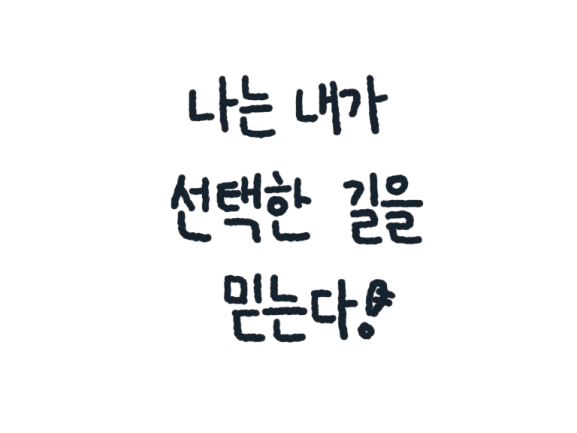 나는 내가
선택한 길을
믿는다!